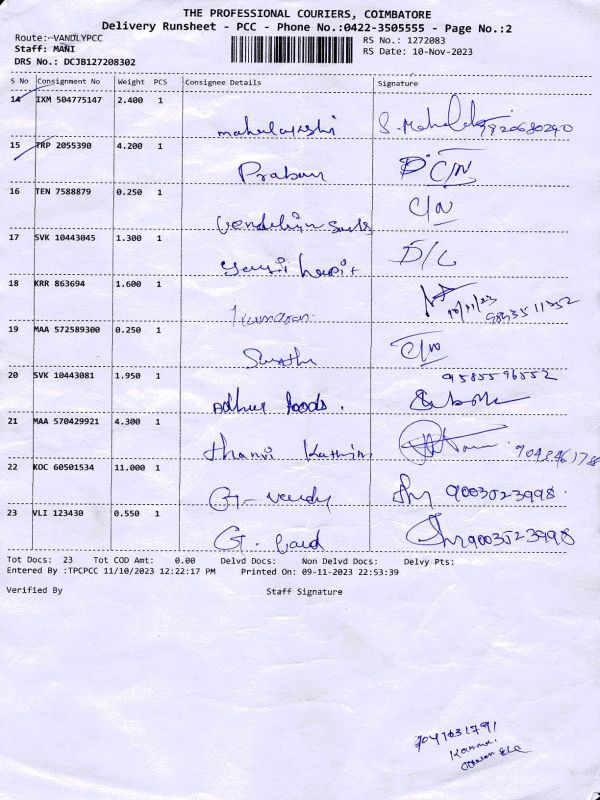 THE PROFESSIONAL COURIERS, COIMBATORE
Delivery Runsheet - PCC - Phone No.:0422-3505555 - Page No.:2
Route: VANDLYPCC RS No.: 1272083
Staff: MANI RS Date: 10-Nov-2023
DRS No.: DCJB127208302
S No Consignment No Weight PCS Consignee Details Signature
14 IXM 504775147 2.400 1
15 TRP 2055390 4.200 1
Prabau D C/N
16 TEN 7588879 0.250 1
C/N
17 SVK 10443045 1.300 1
D/C
18 KRR 863694 1.600 1
Kumaran 10/11/23
19 MAA 572589300 0.250 1
Swathi C/N
20 SVK 10443081 1.950 1 9585596552
Adhur foods.
21 MAA 570429921 4.300 1
thanvi
22 KOC 60501534 11.000 1
G- 9003523998.
23 VLI 123430 0.550 1
G. 9003523998
Tot Docs: 23 Tot COD Amt: 0.00 Delvd Docs: Non Delvd Docs: Delvy Pts:
Entered By :TPCPCC 11/10/2023 12:22:17 PM Printed On: 09-11-2023 22:53:39
Verified By Staff Signature